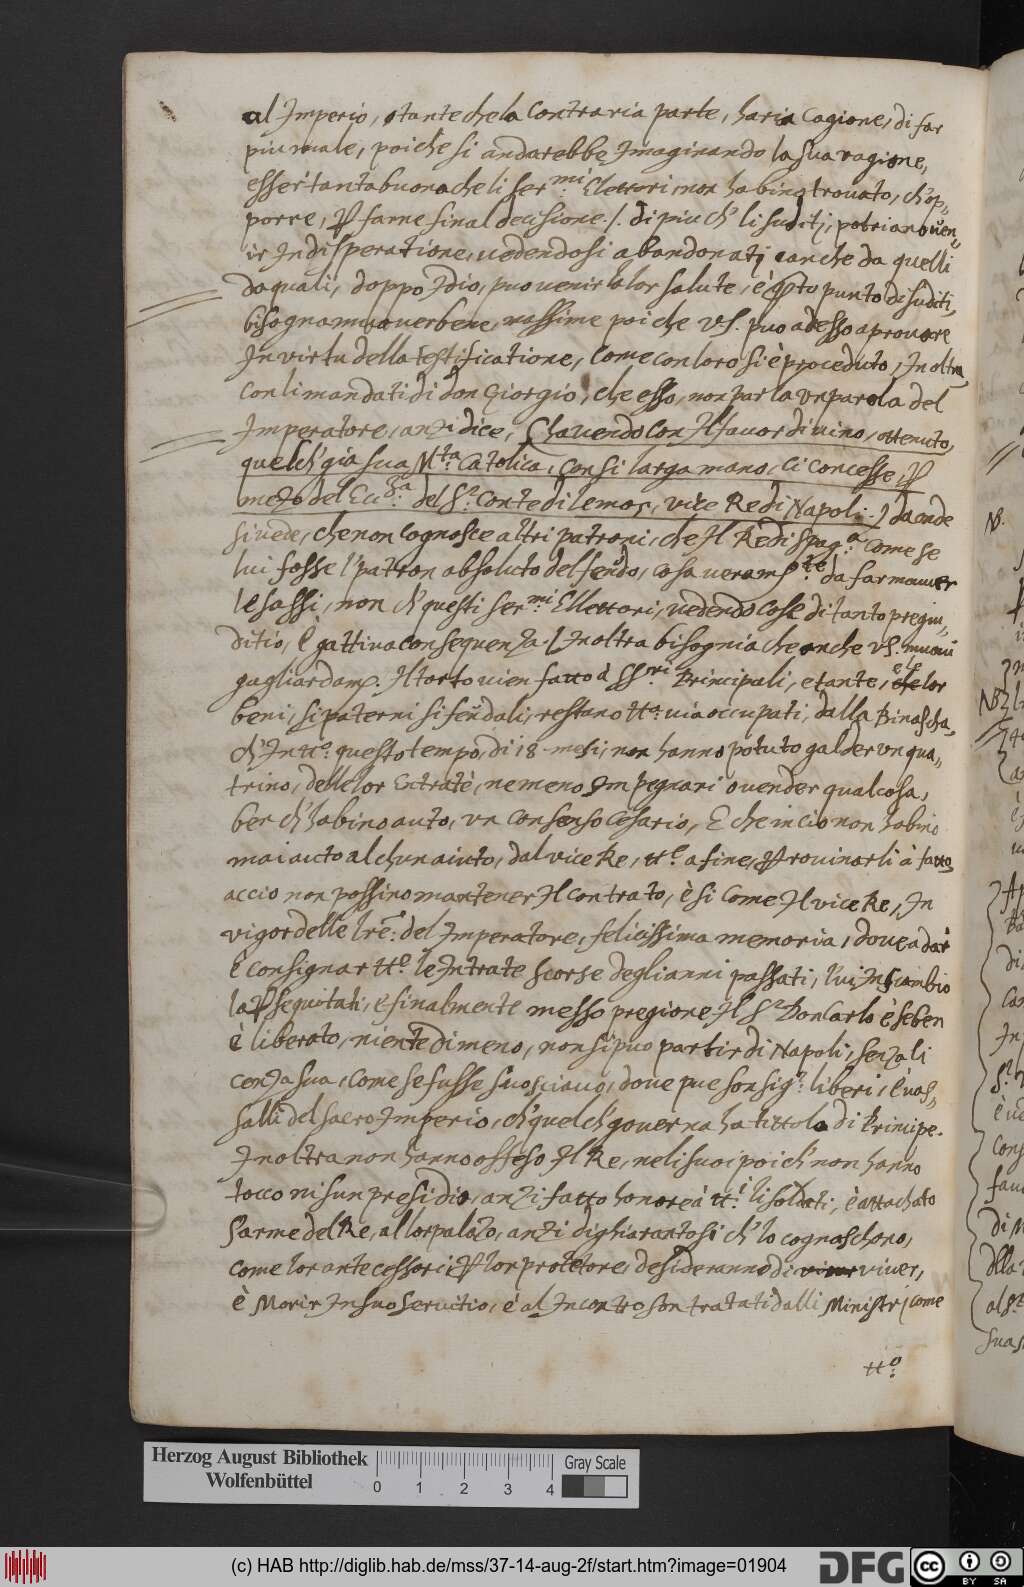 al Imperio, stante che la contraria parte, haria cagione, di far
piu male, poiche si andarebbe Imaginando la sua ragione,
esser tanta buona che li ser.mi Elettori non habino trovato, ch'op„
porre, p farne final decisione ./. di piu ch' li suditj, potriano ven„
ir In disperatione, vedendosi abandonatj anche da quelli
da quali, doppo Idio, puo venir la lor salute, è qto punto di suditi,
bisogna muover bene, massime poiche VS. puo adesso aprovare
In virtu della testificatione, come con loro si è proceduto, In oltra,
con li mandati di don Giorgio, che esso, non parla un parola del
Imperatore, anzi dice, (havendo con Il favor divino, ottenuto,
quel ch' gia sua M.ta Catolica, con si larga mano, ci concesse, p
mezo del Ecc.za del S.r Conte di lemos, vice Re di Napoli ) da onde
si vede, che non cognosce altri patroni, che Il Re di spag.a come se
lui fosse l'patron absoluto del feudo, cosa veram.te da far mouver
le sassi, non ch' questi ser.mi Ellettori, vedendo cose di tanto pregiu„
ditio, è gattiva consequenza ./. In oltra bisognia che anche VS. muovi
gagliardam. Il torto vien fatto à SS.ri Principali, e tante, ele lor
beni, si paterni si feudali, restano tt.a via occupati, dalla Binascha,
ch' In tt.o questo tempo, di 18 mesi, non hanno potuto galder un qua„
trino, delle lor Entrate, ne meno Impegnari o vender qualcosa,
ber ch' habino auto, un Consenso Cesario, E che in cio non habino
mai auto alchun aiuto, dal vice Re, tt.e a fine, p rovinarli à fatto
accio non possino mantener Il contrato, è si come Il vice Re, In
vigor delle lre: del Imperatore, felicissima memoria, dovea dar
è consignar tt.e le Intrate scorse degli anni passati, lui In scambio
la psequitati, e finalmente messo pregione Il S.r Don Carlo è se ben
è liberato, niente di meno, non si puo partir di Napoli, senza li
cenza sua, come se fusse suo sciavo, dove pue son sig.ri liberi, è vas„
salli del sacro Imperio, ch' quel ch' governa ha tittolo di Principe.
In oltra non hanno offeso Il Re, ne li suoi poi ch' non hanno
tocco nisun presidio, anzi fatto honore à tt.i li soldati, è attachato
l'arme del Re, al lor palazo, anzi dighiarantosi ch' lo cognaschono,
come lor antecessori, p lor protetore, desideranno di viver,
è Morir In suo servitio, è al Incontro son tratati dalli Ministrj come
tt.o
NB.
NB
Herzog August Bibliothek
Wolfenbüttel
0 1 2 3 4
Gray Scale
(c) HAB http://diglib.hab.de/mss/37-14-aug-2f/start.htm?image=01904
DFG
cc BY SA